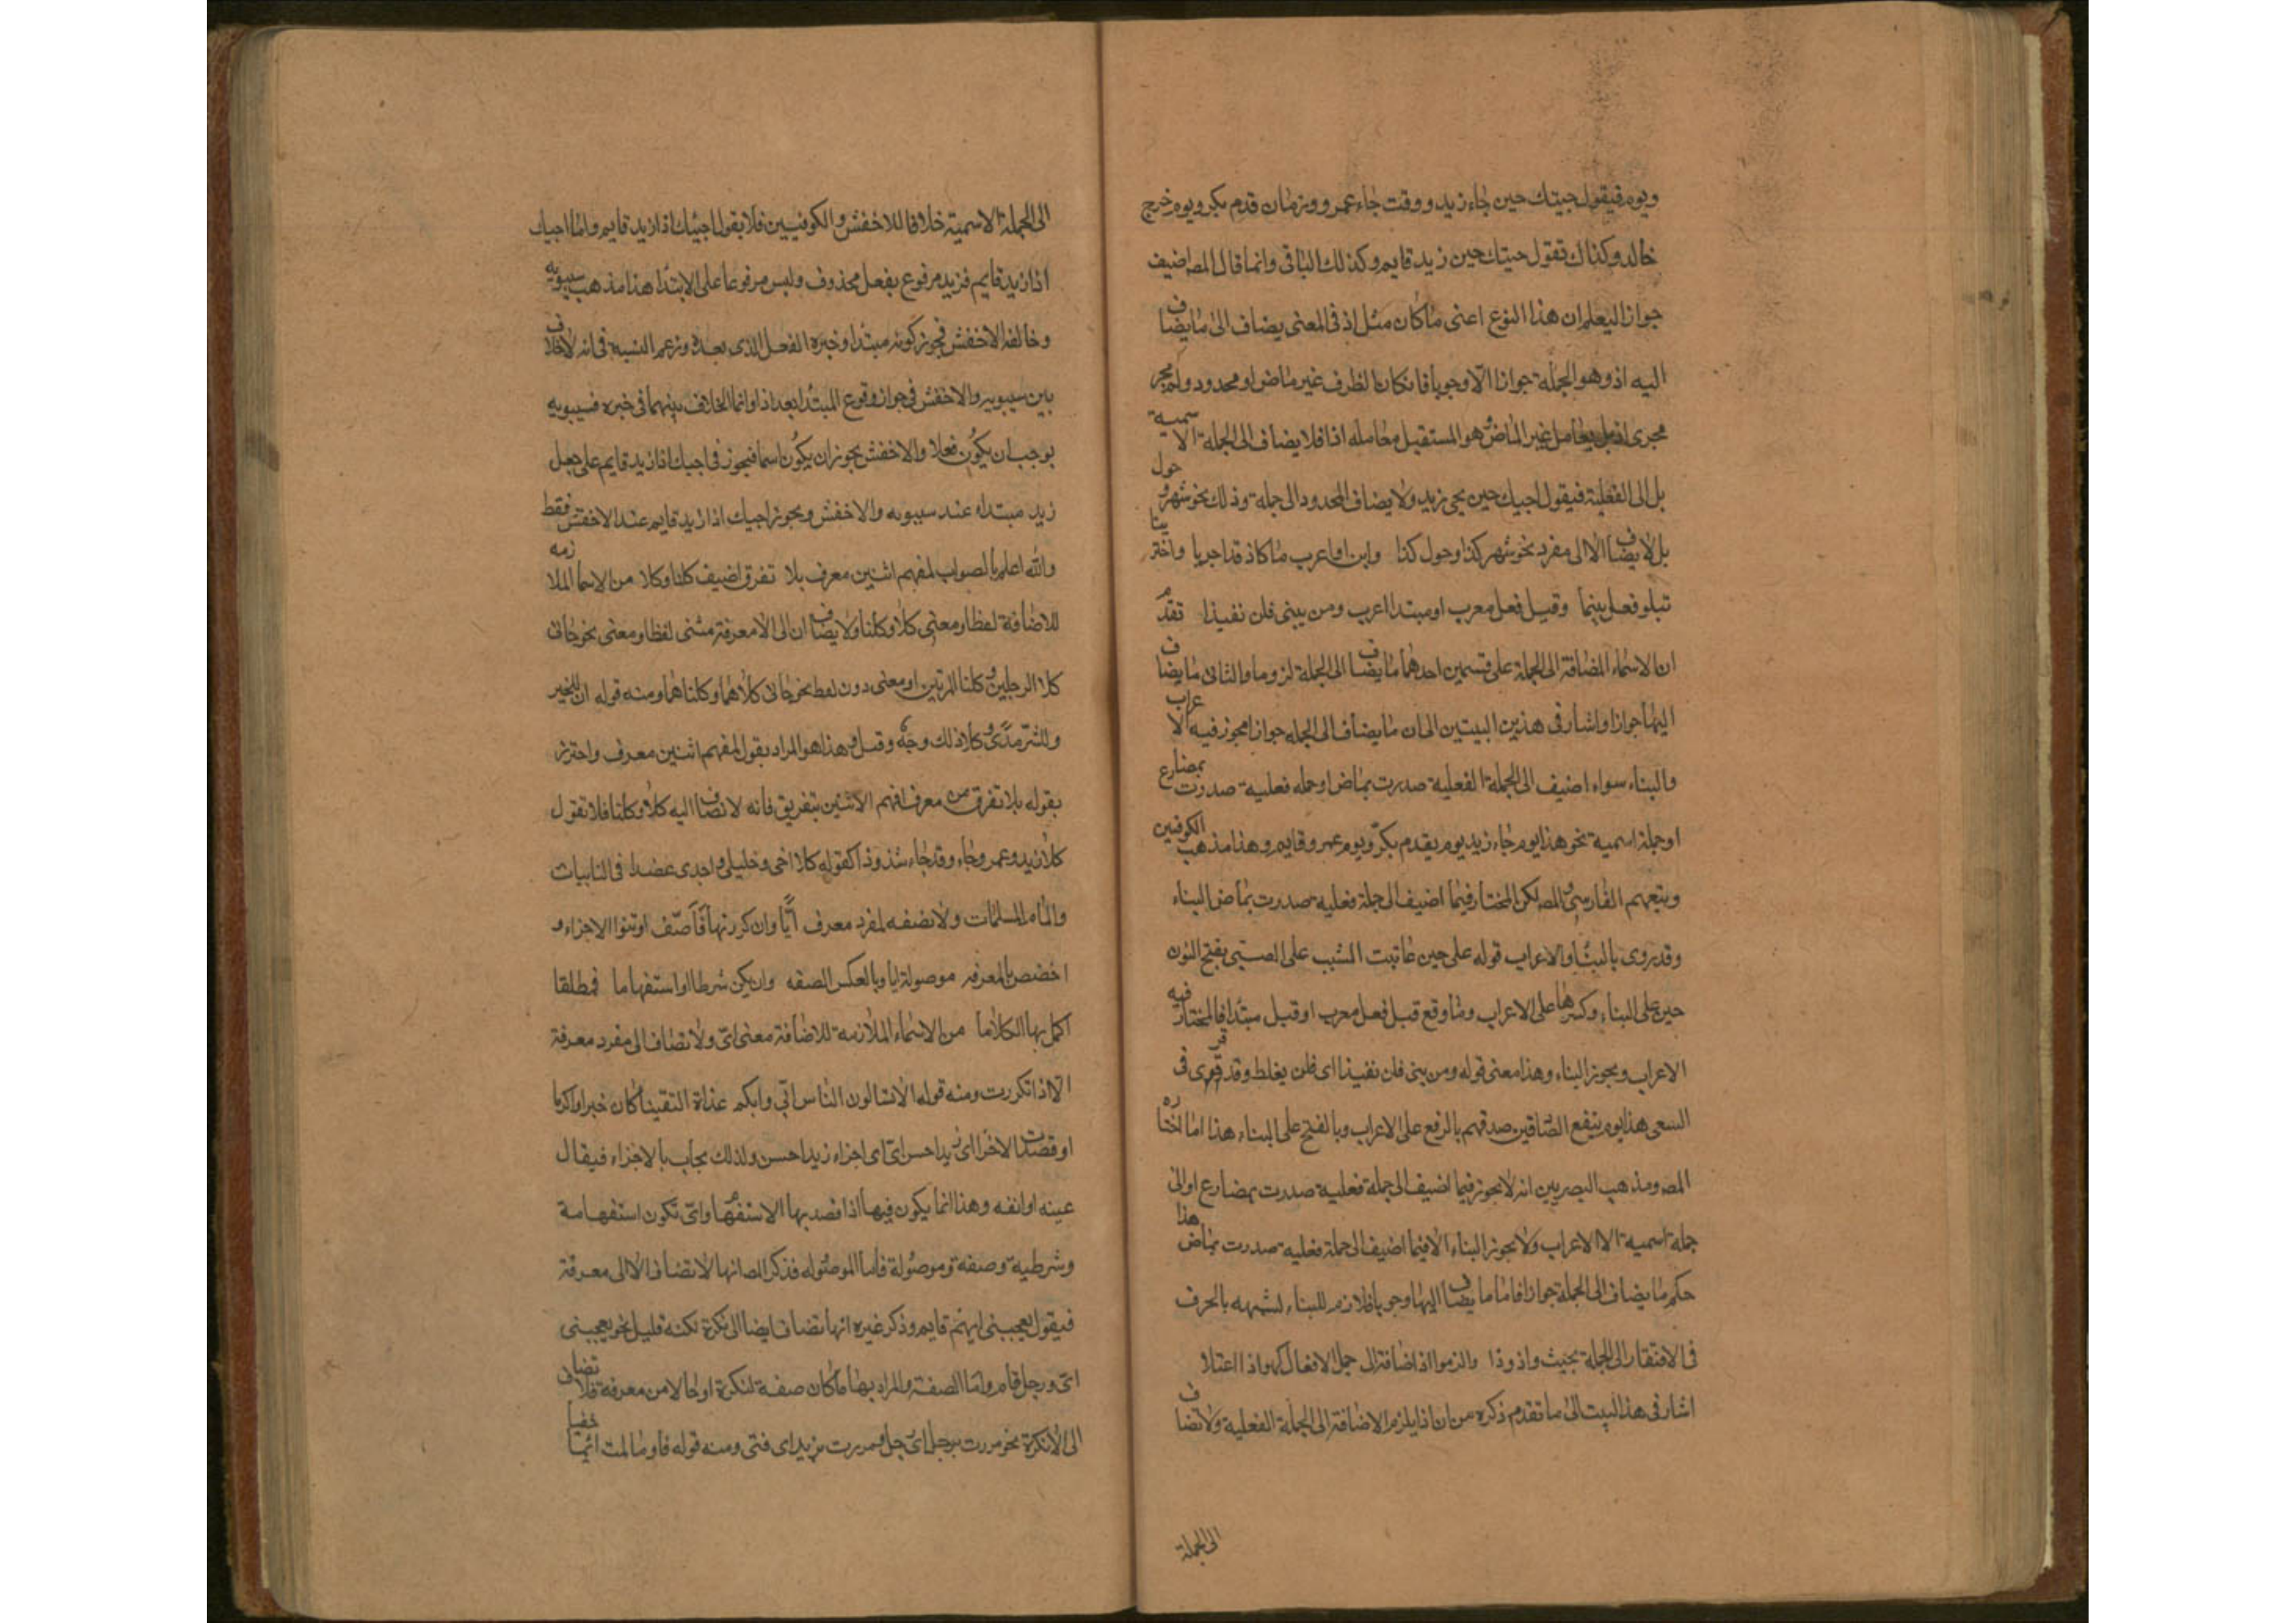 ويوم فيقول جيتك حين جاء زيد ووقت جاء عمرو وزمان قدم بكر ويوم خرج
خالد وكذلك تقول جيتك حين زيد قايم وكذلك الباقى وانما قال المص اضيف
جوازا ليعلم ان هذا النوع اعنى ما كان مثل اذ فى المعنى يضاف الى ما يضاف
اليه اذ وهو الجملة جوازا لا وجوبا فان كان الظرف غير ماض او محدود ولم يجر
مجرى اذ بل يعامل غير الماض وهو المستقبل معامله اذا فلا يضاف الى الجملة الاسمية
بل الى الفعلية فيقول اجيك حين يجى زيد ولا يضاف المحدود الى جملة وذلك نحو شهر وحول
بل لا يضاف الا الى مفرد نحو شهر كذا وحول كذا وابن او اعرب ما كاذ قد اجريا واختر بنا
تبلو فعل بنيا وقبل فعل معرب او مبتدا اعرب ومن بنى فلن نفيذا تقدم
ان الاسماء المضافة الى الجملة على قسمين احدهما ما يضاف الى الجملة لزوما والثانى ما يضاف
اليها جوازا واشار فى هذين البيتين الى ان ما يضاف الى الجمله جوازا يجوز فيه الاعراب
والبناء سواء اضيف الى الجملة الفعلية صدرت بماض او جمله فعلية صدرت بمضارع
او جملة اسمية نحو هذا يوم جاء زيد يوم يقدم بكر ويوم عمرو قايم وهذا مذهب الكوفيين
وتبعهم الفارسى والمص لكن المختار فيما اضيف الى جملة فعليه صدرت بماض البناء
وقد روى بالبناء والاعراب قوله على حين عاتبت المشيب على الصبى بفتح النون
حين على البناء وكسرها على الاعراب وما وقع قبل فعل معرب او قبل مبتدا فالمختار فيه
الاعراب ويجوز البناء وهذا معنى قوله ومن بنى فلن نفيذا اى فلن يغلط وقد قرى فى
السعى هذا يوم ينفع الصادقين صدقهم بالرفع على الاعراب وبالفتح على البناء هذا اما اختاره
المص ومذهب البصريين انه لا يجوز فيما اضيف الى جملة فعلية صدرت بمضارع او الى
جملة اسمية الا الاعراب ولا يجوز البناء الا فيما اضيف الى جملة فعليه صدرت بماض هذا
حكم ما يضاف الى الجملة جوازا فاما ما يضاف اليها وجوبا فلازم للبناء لشبهه بالحرف
فى الافتقار الى الجملة بحيث واذ وذا والزموا اذا اضافة الى جمل الافعال كهن اذا اعتلا
اشار فى هذا البيت الى ما تقدم ذكره من ان اذا يلزم الاضافة الى الجملة الفعلية ولا تضاف
الى الجملة
الى الجملة الاسمية خلافا للاخفش والكوفيين فلا يقول اجيئك اذا زيد قايم واما اجيك
اذا زيد قايم فزيد مرفوع بفعل محذوف وليس مرفوعا على الابتدا هذا مذهب سيبويه
وخالفه الاخفش فجوز كونه مبتدا وخبره الفعل الذى بعده وزعم السبه فى انه لا خلاف
بين سيبويه والاخفش فى جواز وقوع المبتدا بعد اذا وانما الخلاف بينهما فى خبره فسيبويه
يوجب ان يكون فعلا والاخفش يجوز ان يكون اسما فيجوز فى اجيك اذا زيد قايم على جعل
زيد مبتداء عند سيبويه والاخفش ويجوز اجيك اذا زيد قايم عند الاخفش فقط
والله اعلم بالصواب لمفهم اثنين معرف بلا تفرق اضيف كلتا وكلا من الاسما الملازمه
للاضافة لفظا ومعنى كلا وكلتا ولا يضافان الى الا معرفة مثنى لفظا ومعنى نحو جانى
كلا الرجلين وكلتا المرتين او معنى دون لفظ نحو جانى كلاهما وكلتاهما ومنه قوله ان للخير
وللشر مدى وكلا ذلك وجه وقبل وهذا هو المراد بقول لمفهم اثنين معرف واحترز
بقوله بلا تفرق من معرف افهم الاثنين بتفريق فانه لا تضاف اليه كلا وكلتا فلا تقول
كلا زيد وعمرو جاء وقد جاء شذوذا كقوله كلا اخى وخليلى واجدى عضدا فى النايبات
والمام الملمات ولا تضف لمفرد معرف ايا وان كررتها فاضف او تنوا الاجزاء و
اخصص بالمعرفه موصولة ايا وبالعكس الصفه وان يكن شرطا او استفهاما فمطلقا
اكمل بها الكلاما من الاسماء الملازمه للاضافة معنى اى ولا تضاف الى مفرد معرفة
الا اذا تكررت ومنه قوله الا تسالون الناس ايى وايكم غداة التقينا كان خيرا واكرما
او قصدت الاجزا اى زيد احسن اى اى اجزاء زيد احسن ولذلك يجاب بالاجزاء فيقال
عينه او انفه وهذا انما يكون فيها اذا قصد بها الاستفهام واى تكون استفهامة
وشرطية وصفة وموصولة فاما الموصوله فذكر المص انها لا تضاف الا الى معرفة
فيقول يعجبنى ايهم قايم وذكر غيره انها تضاف ايضا الى نكرة لكنه قليل نحو يعجبنى
اى ورجل قام واما الصفة والمراد بها ما كان صفة لنكرة او حالا من معرفة فلا تضاف
الى الا نكرة نحو مررت برجل اى رجل ومررت بزيد اى فتى ومنه قوله فاومات ايما خفيا